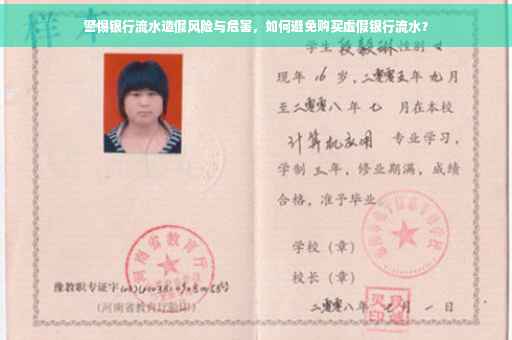 警惕银行流水造假风险与危害，如何避免购买虚假银行流水？
样本
学生段毅琳性别女
现年16岁，二零零五年九月
至二零零八年七 月在本校
计算机应用 专业学习，
学制三年，修业期满，成绩
合格，准予毕业
学校（章）
校长（章）
河南省教育厅
豫教职专证字
（河南省教育厅验印）
二零零八年七月一日